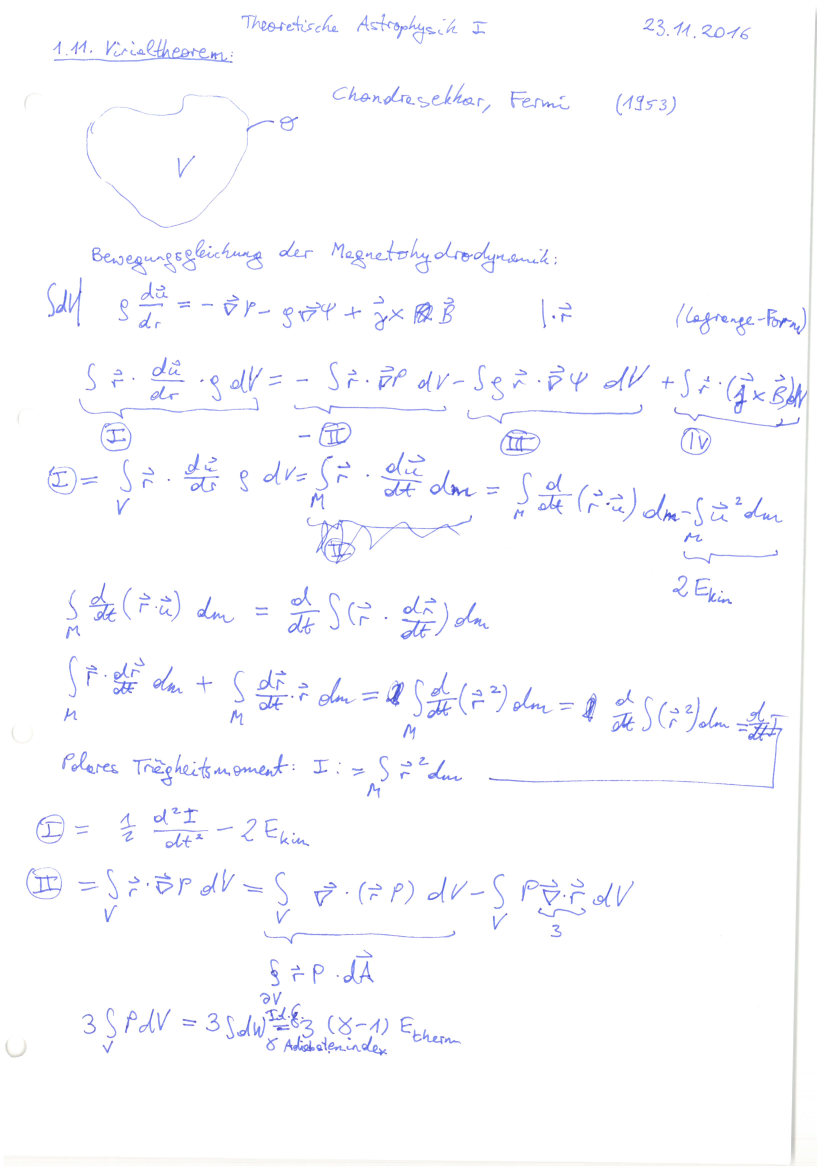 Theoretische Astrophysik I 23.11.2016
1.11. Virialtheorem:
Chandrasekhar, Fermi (1953)
V
Bewegungsgleichung der Magnetohydrodynamik:
∫dV| ρ du⃗/dr = - ∇⃗P - ρ∇⃗Ψ + j⃗ × B⃗ | · r⃗ (Lagrange-Form)
∫ r⃗ · du⃗/dr · ρ dV = - ∫ r⃗ · ∇⃗P dV - ∫ρ r⃗ · ∇⃗Ψ dV + ∫ r⃗ · (j⃗ × B⃗)dV
I - II III IV
I = ∫_V r⃗ · du⃗/dr ρ dV = ∫_M r⃗ · du⃗/dt dm = ∫_M d/dt (r⃗·u⃗) dm - ∫_M u⃗² dm
2 E_kin
∫_M d/dt (r⃗·u⃗) dm = d/dt ∫(r⃗ · dr⃗/dt) dm
∫_M r⃗ · dr⃗/dt dm + ∫_M dr⃗/dt · r⃗ dm = ∫_M d/dt (r⃗²) dm = d/dt ∫(r⃗²) dm = d/dt I
Polares Trägheitsmoment: I := ∫_M r⃗² dm
I = 1/2 d²I/dt² - 2 E_kin
II = ∫_V r⃗ · ∇⃗P dV = ∫_V ∇⃗ · (r⃗ P) dV - ∫_V P ∇⃗·r⃗ dV
3
∮_∂V r⃗ P · dA⃗
3 ∫_V P dV = 3 ∫dW = 3 (γ-1) E_therm
Id.G.
γ Adiabatenindex